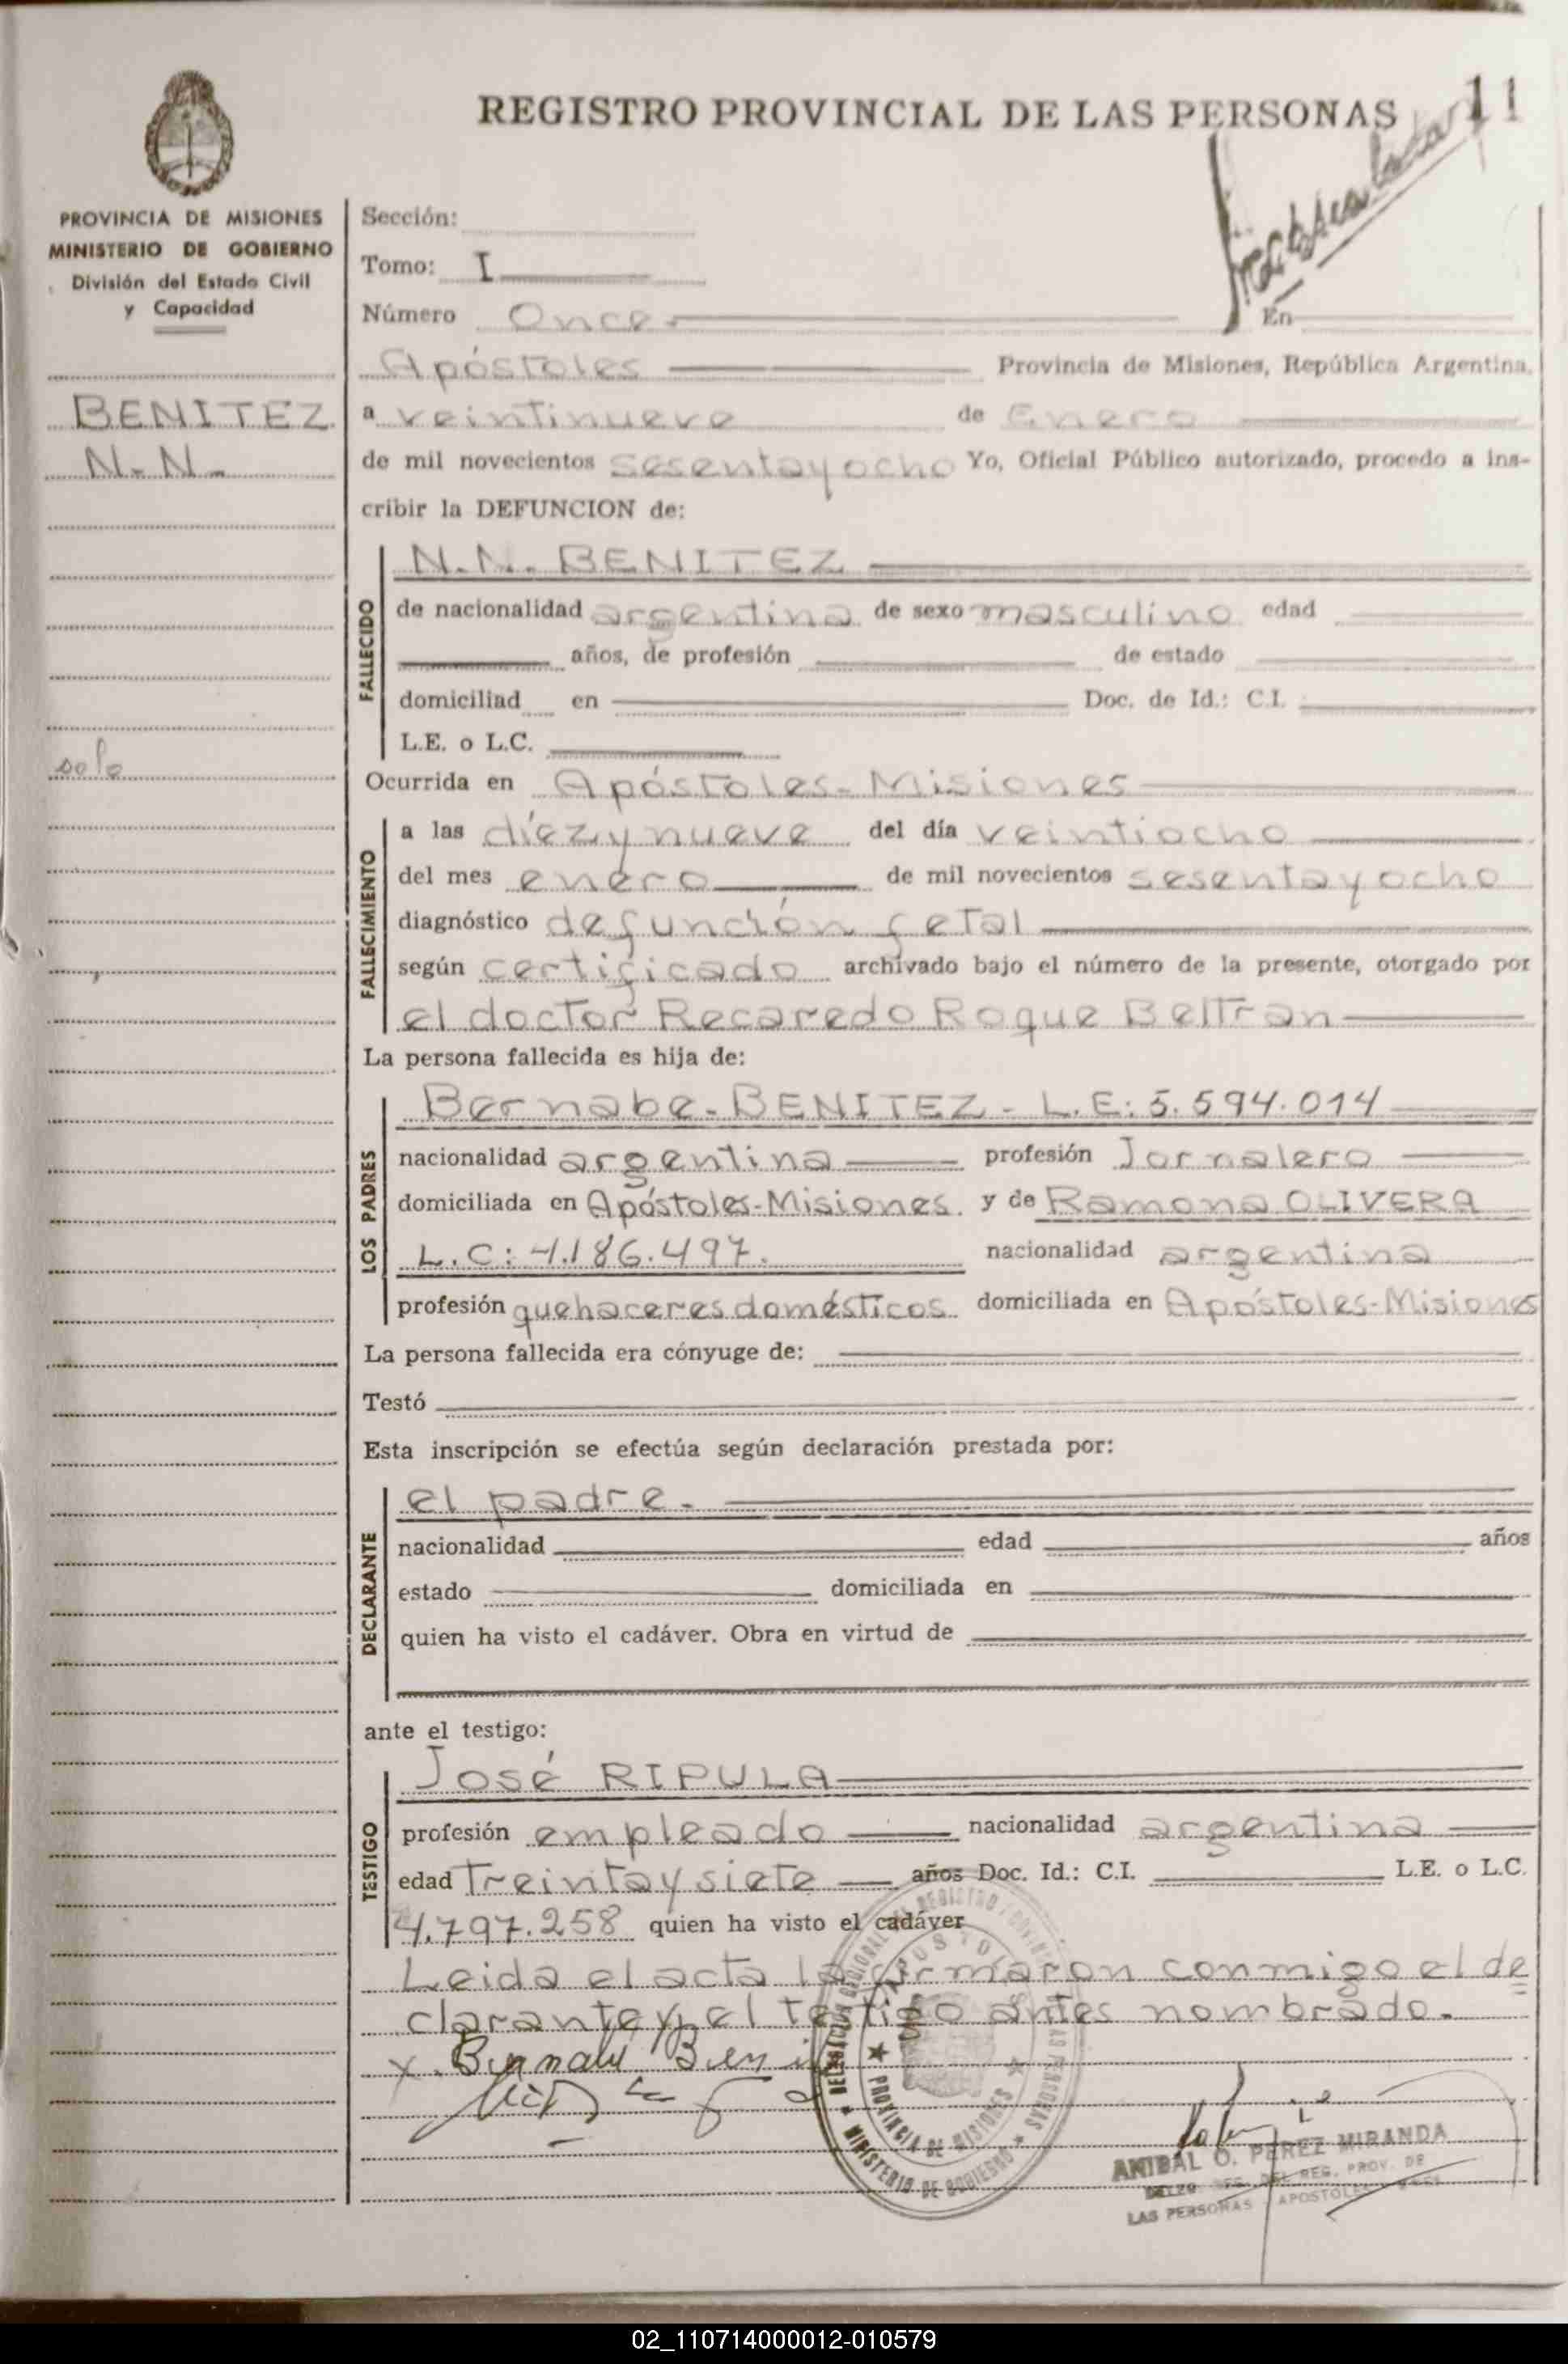 REGISTRO PROVINCIAL DE LAS PERSONAS
11
PROVINCIA DE MISIONES
MINISTERIO DE GOBIERNO
División del Estado Civil
y Capacidad
BENITEZ
N.N.
Sección:
Tomo: I
Número Once
En
Apóstoles Provincia de Misiones, República Argentina,
a veintinueve de Enero
de mil novecientos sesentayocho Yo, Oficial Público autorizado, procedo a ins-
cribir la DEFUNCION de:
FALLECIDO
N.N. BENITEZ
de nacionalidad argentina de sexo masculino edad
años, de profesión de estado
domiciliad en Doc. de Id.: C.I.
L.E. o L.C.
Ocurrida en Apóstoles-Misiones
FALLECIMIENTO
a las diezynueve del día veintiocho
del mes enero de mil novecientos sesentayocho
diagnóstico defunción fetal
según certificado archivado bajo el número de la presente, otorgado por
el doctor Recaredo Roque Beltran
La persona fallecida es hija de:
LOS PADRES
Bernabe-BENITEZ- L.E: 5.594.014
nacionalidad argentina profesión Jornalero
domiciliada en Apóstoles-Misiones. y de Ramona OLIVERA
L.C: 4.186.497. nacionalidad argentina
profesión quehaceres domésticos domiciliada en Apóstoles-Misiones
La persona fallecida era cónyuge de:
Testó
Esta inscripción se efectúa según declaración prestada por:
DECLARANTE
el padre.
nacionalidad edad años
estado domiciliada en
quien ha visto el cadáver. Obra en virtud de
ante el testigo:
TESTIGO
José RIPULA
profesión empleado nacionalidad argentina
edad Treintaysiete años Doc. Id.: C.I. L.E. o L.C.
4.797.258 quien ha visto el cadáver
Leida el acta la firmaron conmigo el de
clarante y el testigo antes nombrado.
PROVINCIA DE MISIONES
MINISTERIO DE GOBIERNO
ANIBAL O. PEREZ MIRANDA
DEL REG. PROV. DE
LAS PERSONAS APOSTOLES
02_110714000012-010579